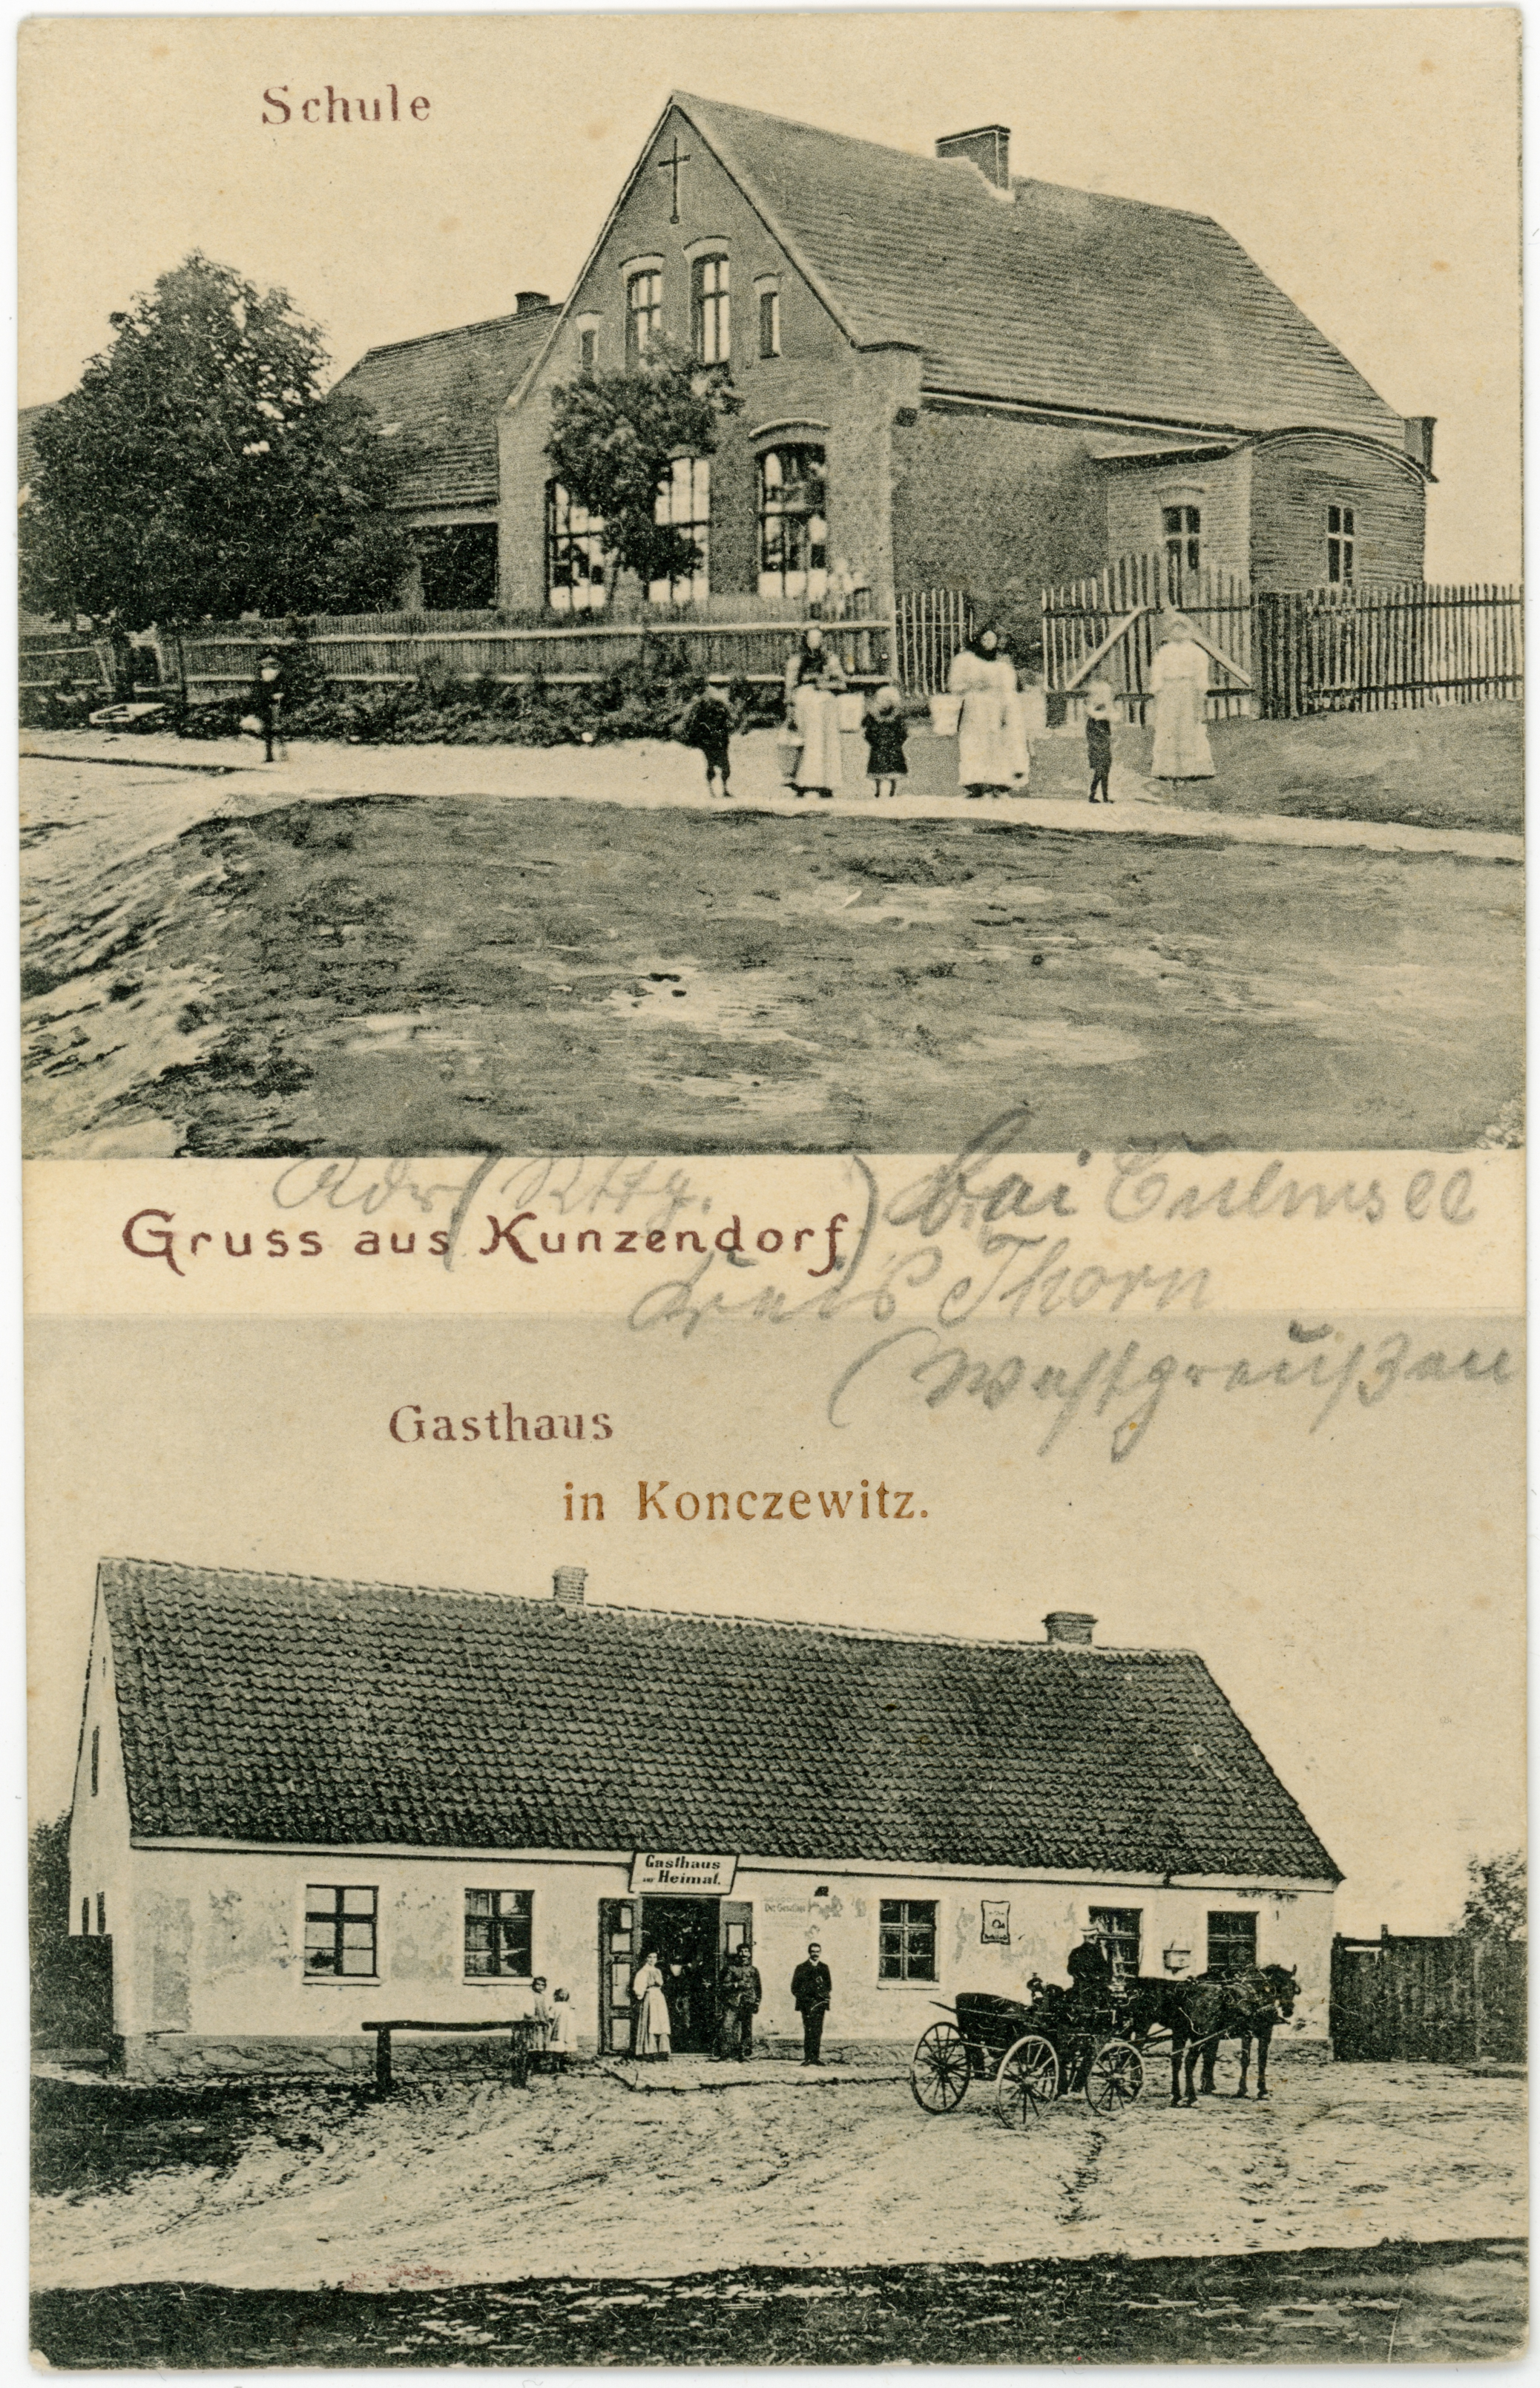 Schule
Adr (Rttg.
Gruss aus Kunzendorf) bei Culmsee
Kreis Thorn
(Westpreußen
Gasthaus
in Konczewitz.
Gasthaus
zur Heimat.